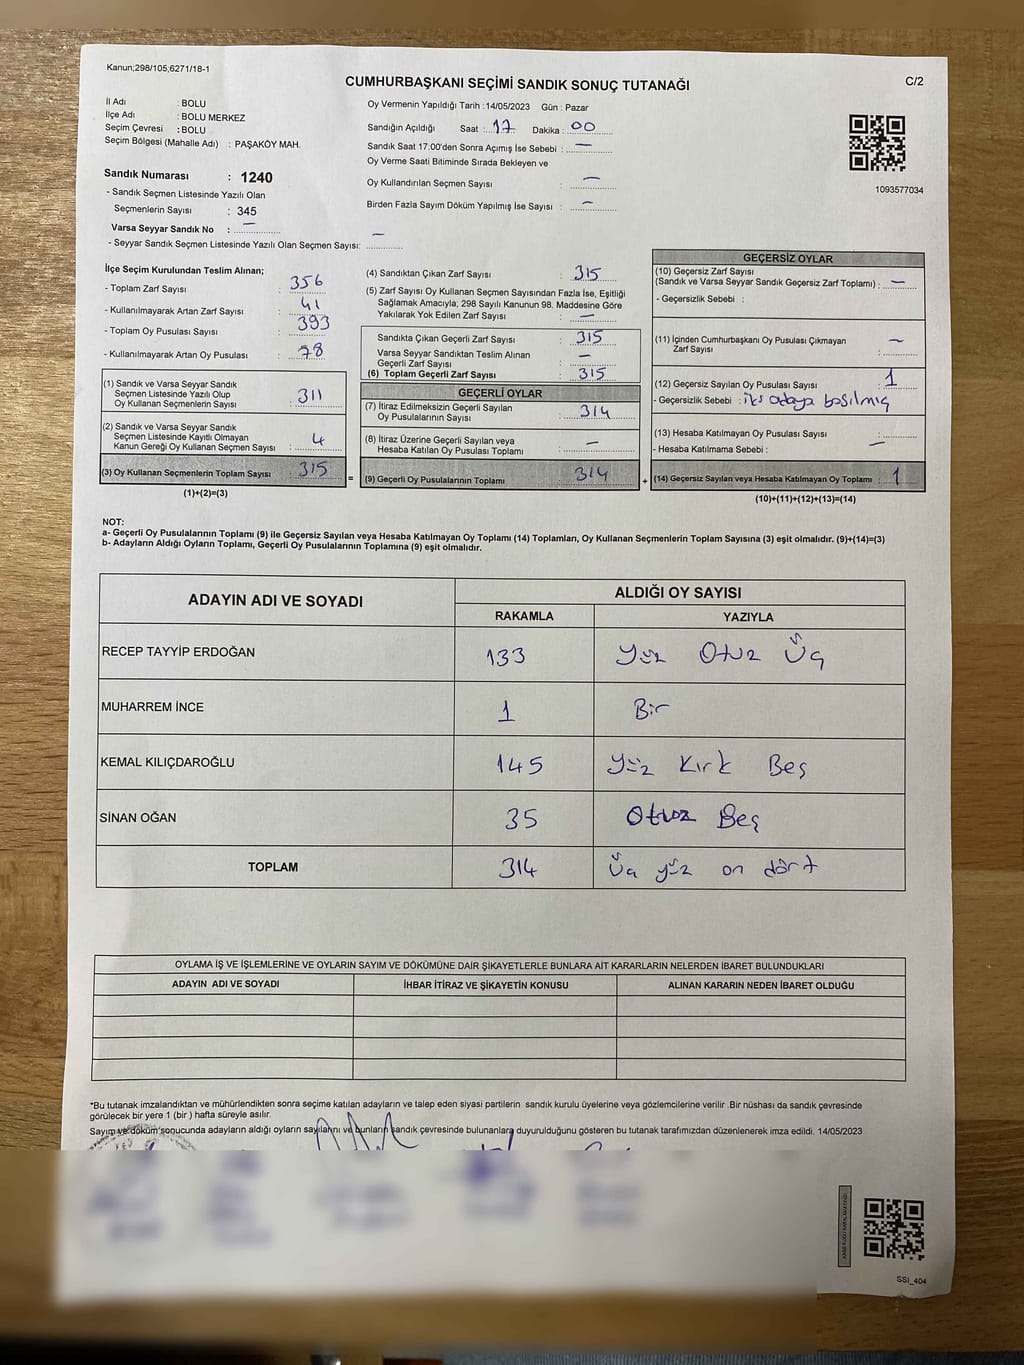 Kanun;298/105;6271/18-1
CUMHURBAŞKANI SEÇİMİ SANDIK SONUÇ TUTANAĞI
C/2
İl Adı : BOLU
İlçe Adı : BOLU MERKEZ
Seçim Çevresi : BOLU
Seçim Bölgesi (Mahalle Adı) : PAŞAKÖY MAH.
Sandık Numarası : 1240
- Sandık Seçmen Listesinde Yazılı Olan
Seçmenlerin Sayısı : 345
Varsa Seyyar Sandık No : —
- Seyyar Sandık Seçmen Listesinde Yazılı Olan Seçmen Sayısı: —
Oy Vermenin Yapıldığı Tarih :14/05/2023 Gün : Pazar
Sandığın Açıldığı Saat : 17 Dakika : 00
Sandık Saat 17:00'den Sonra Açılmış İse Sebebi : —
Oy Verme Saati Bitiminde Sırada Bekleyen ve
Oy Kullandırılan Seçmen Sayısı : —
Birden Fazla Sayım Döküm Yapılmış İse Sayısı : —
1093577034
İlçe Seçim Kurulundan Teslim Alınan;
- Toplam Zarf Sayısı : 356
- Kullanılmayarak Artan Zarf Sayısı : 41
- Toplam Oy Pusulası Sayısı : 393
- Kullanılmayarak Artan Oy Pusulası : 78
(1) Sandık ve Varsa Seyyar Sandık
Seçmen Listesinde Yazılı Olup
Oy Kullanan Seçmenlerin Sayısı : 311
(2) Sandık ve Varsa Seyyar Sandık
Seçmen Listesinde Kayıtlı Olmayan
Kanun Gereği Oy Kullanan Seçmen Sayısı : 4
(3) Oy Kullanan Seçmenlerin Toplam Sayısı : 315
(1)+(2)=(3)
=
(4) Sandıktan Çıkan Zarf Sayısı : 315
(5) Zarf Sayısı Oy Kullanan Seçmen Sayısından Fazla İse, Eşitliği
Sağlamak Amacıyla; 298 Sayılı Kanunun 98. Maddesine Göre
Yakılarak Yok Edilen Zarf Sayısı : —
Sandıkta Çıkan Geçerli Zarf Sayısı : 315
Varsa Seyyar Sandıktan Teslim Alınan
Geçerli Zarf Sayısı : —
(6) Toplam Geçerli Zarf Sayısı : 315
GEÇERLİ OYLAR
(7) İtiraz Edilmeksizin Geçerli Sayılan
Oy Pusulalarının Sayısı : 314
(8) İtiraz Üzerine Geçerli Sayılan veya
Hesaba Katılan Oy Pusulası Toplamı : —
(9) Geçerli Oy Pusulalarının Toplamı : 314
+
GEÇERSİZ OYLAR
(10) Geçersiz Zarf Sayısı
(Sandık ve Varsa Seyyar Sandık Geçersiz Zarf Toplamı) : —
- Geçersizlik Sebebi :
(11) İçinden Cumhurbaşkanı Oy Pusulası Çıkmayan
Zarf Sayısı : —
(12) Geçersiz Sayılan Oy Pusulası Sayısı : 1
- Geçersizlik Sebebi : iki adaya basılmış
(13) Hesaba Katılmayan Oy Pusulası Sayısı : —
- Hesaba Katılmama Sebebi :
(14) Geçersiz Sayılan veya Hesaba Katılmayan Oy Toplamı : 1
(10)+(11)+(12)+(13)=(14)
NOT:
a- Geçerli Oy Pusulalarının Toplamı (9) ile Geçersiz Sayılan veya Hesaba Katılmayan Oy Toplamı (14) Toplamları, Oy Kullanan Seçmenlerin Toplam Sayısına (3) eşit olmalıdır. (9)+(14)=(3)
b- Adayların Aldığı Oyların Toplamı, Geçerli Oy Pusulalarının Toplamına (9) eşit olmalıdır.
ADAYIN ADI VE SOYADI
ALDIĞI OY SAYISI
RAKAMLA YAZIYLA
RECEP TAYYİP ERDOĞAN 133 Yüz Otuz Üç
MUHARREM İNCE 1 Bir
KEMAL KILIÇDAROĞLU 145 Yüz Kırk Beş
SİNAN OĞAN 35 Otuz Beş
TOPLAM 314 Üç yüz on dört
OYLAMA İŞ VE İŞLEMLERİNE VE OYLARIN SAYIM VE DÖKÜMÜNE DAİR ŞİKAYETLERLE BUNLARA AİT KARARLARIN NELERDEN İBARET BULUNDUKLARI
ADAYIN ADI VE SOYADI İHBAR İTİRAZ VE ŞİKAYETİN KONUSU ALINAN KARARIN NEDEN İBARET OLDUĞU
*Bu tutanak imzalandıktan ve mühürlendikten sonra seçime katılan adayların ve talep eden siyasi partilerin sandık kurulu üyelerine veya gözlemcilerine verilir .Bir nüshası da sandık çevresinde
görülecek bir yere 1 (bir ) hafta süreyle asılır.
Sayım ve döküm sonucunda adayların aldığı oyların sayılarını ve bunların sandık çevresinde bulunanlara duyurulduğunu gösteren bu tutanak tarafımızdan düzenlenerek imza edildi. 14/05/2023
SSI_404